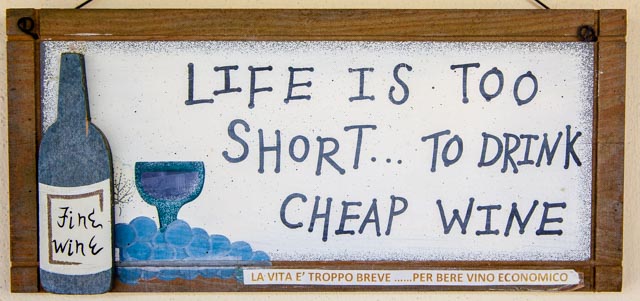 LIFE IS TOO
SHORT... TO DRINK
CHEAP WINE
Fine
wine
LA VITA E' TROPPO BREVE ......PER BERE VINO ECONOMICO